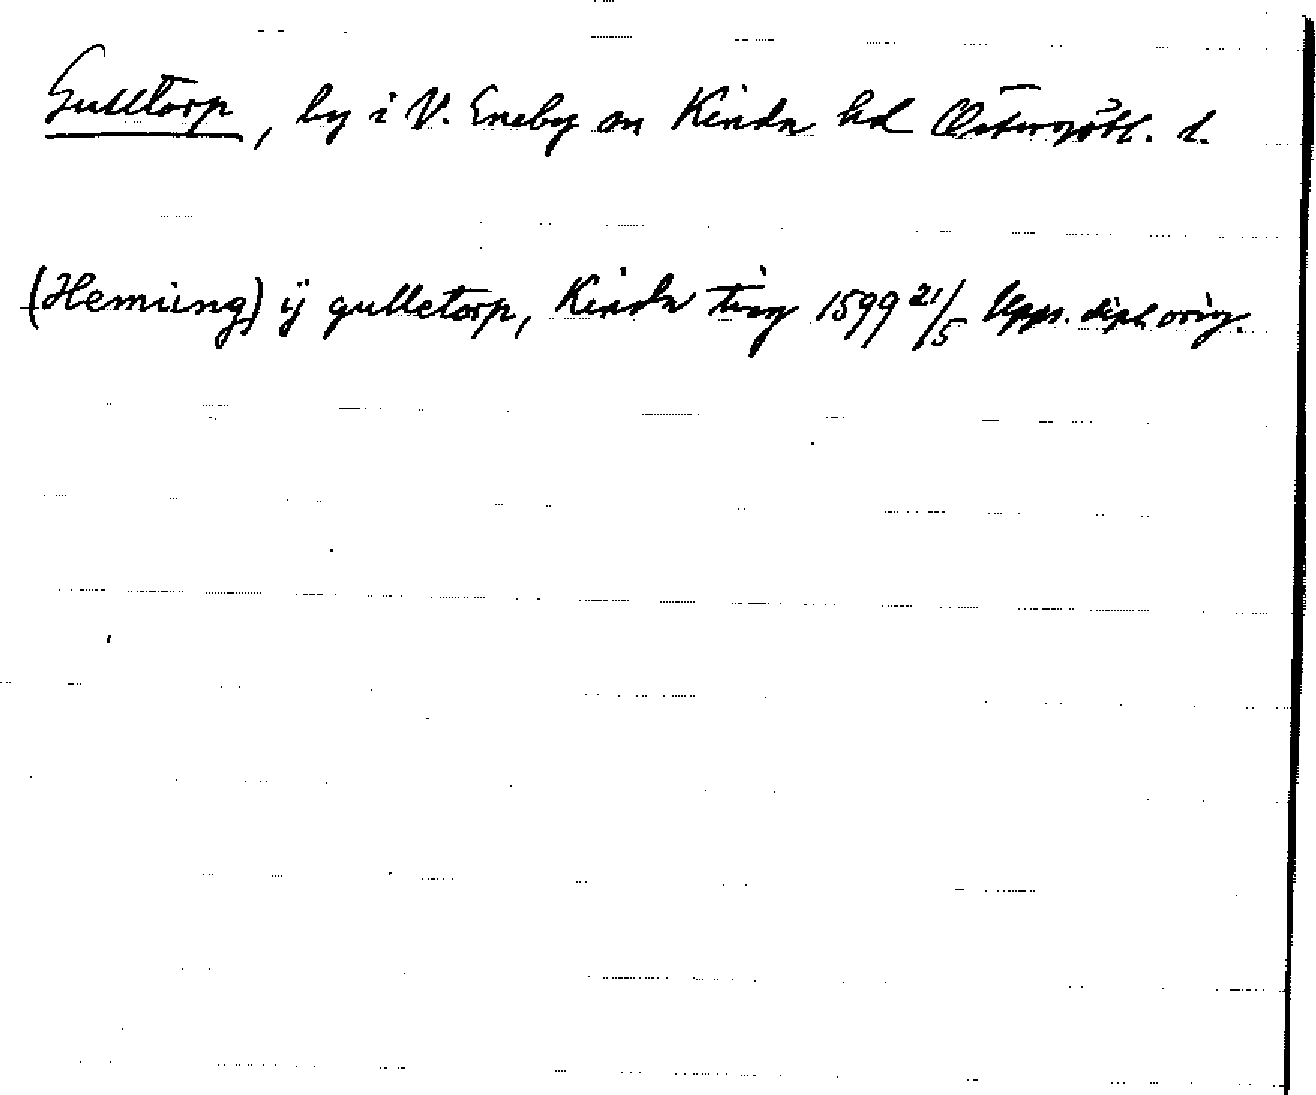 Gulltorp, by i V. Eneby sn Kinda hd Östergötl. l.
(Heming) ij gulletorp, Kinda ting 1599 21/5 Upps. dipl. orig.